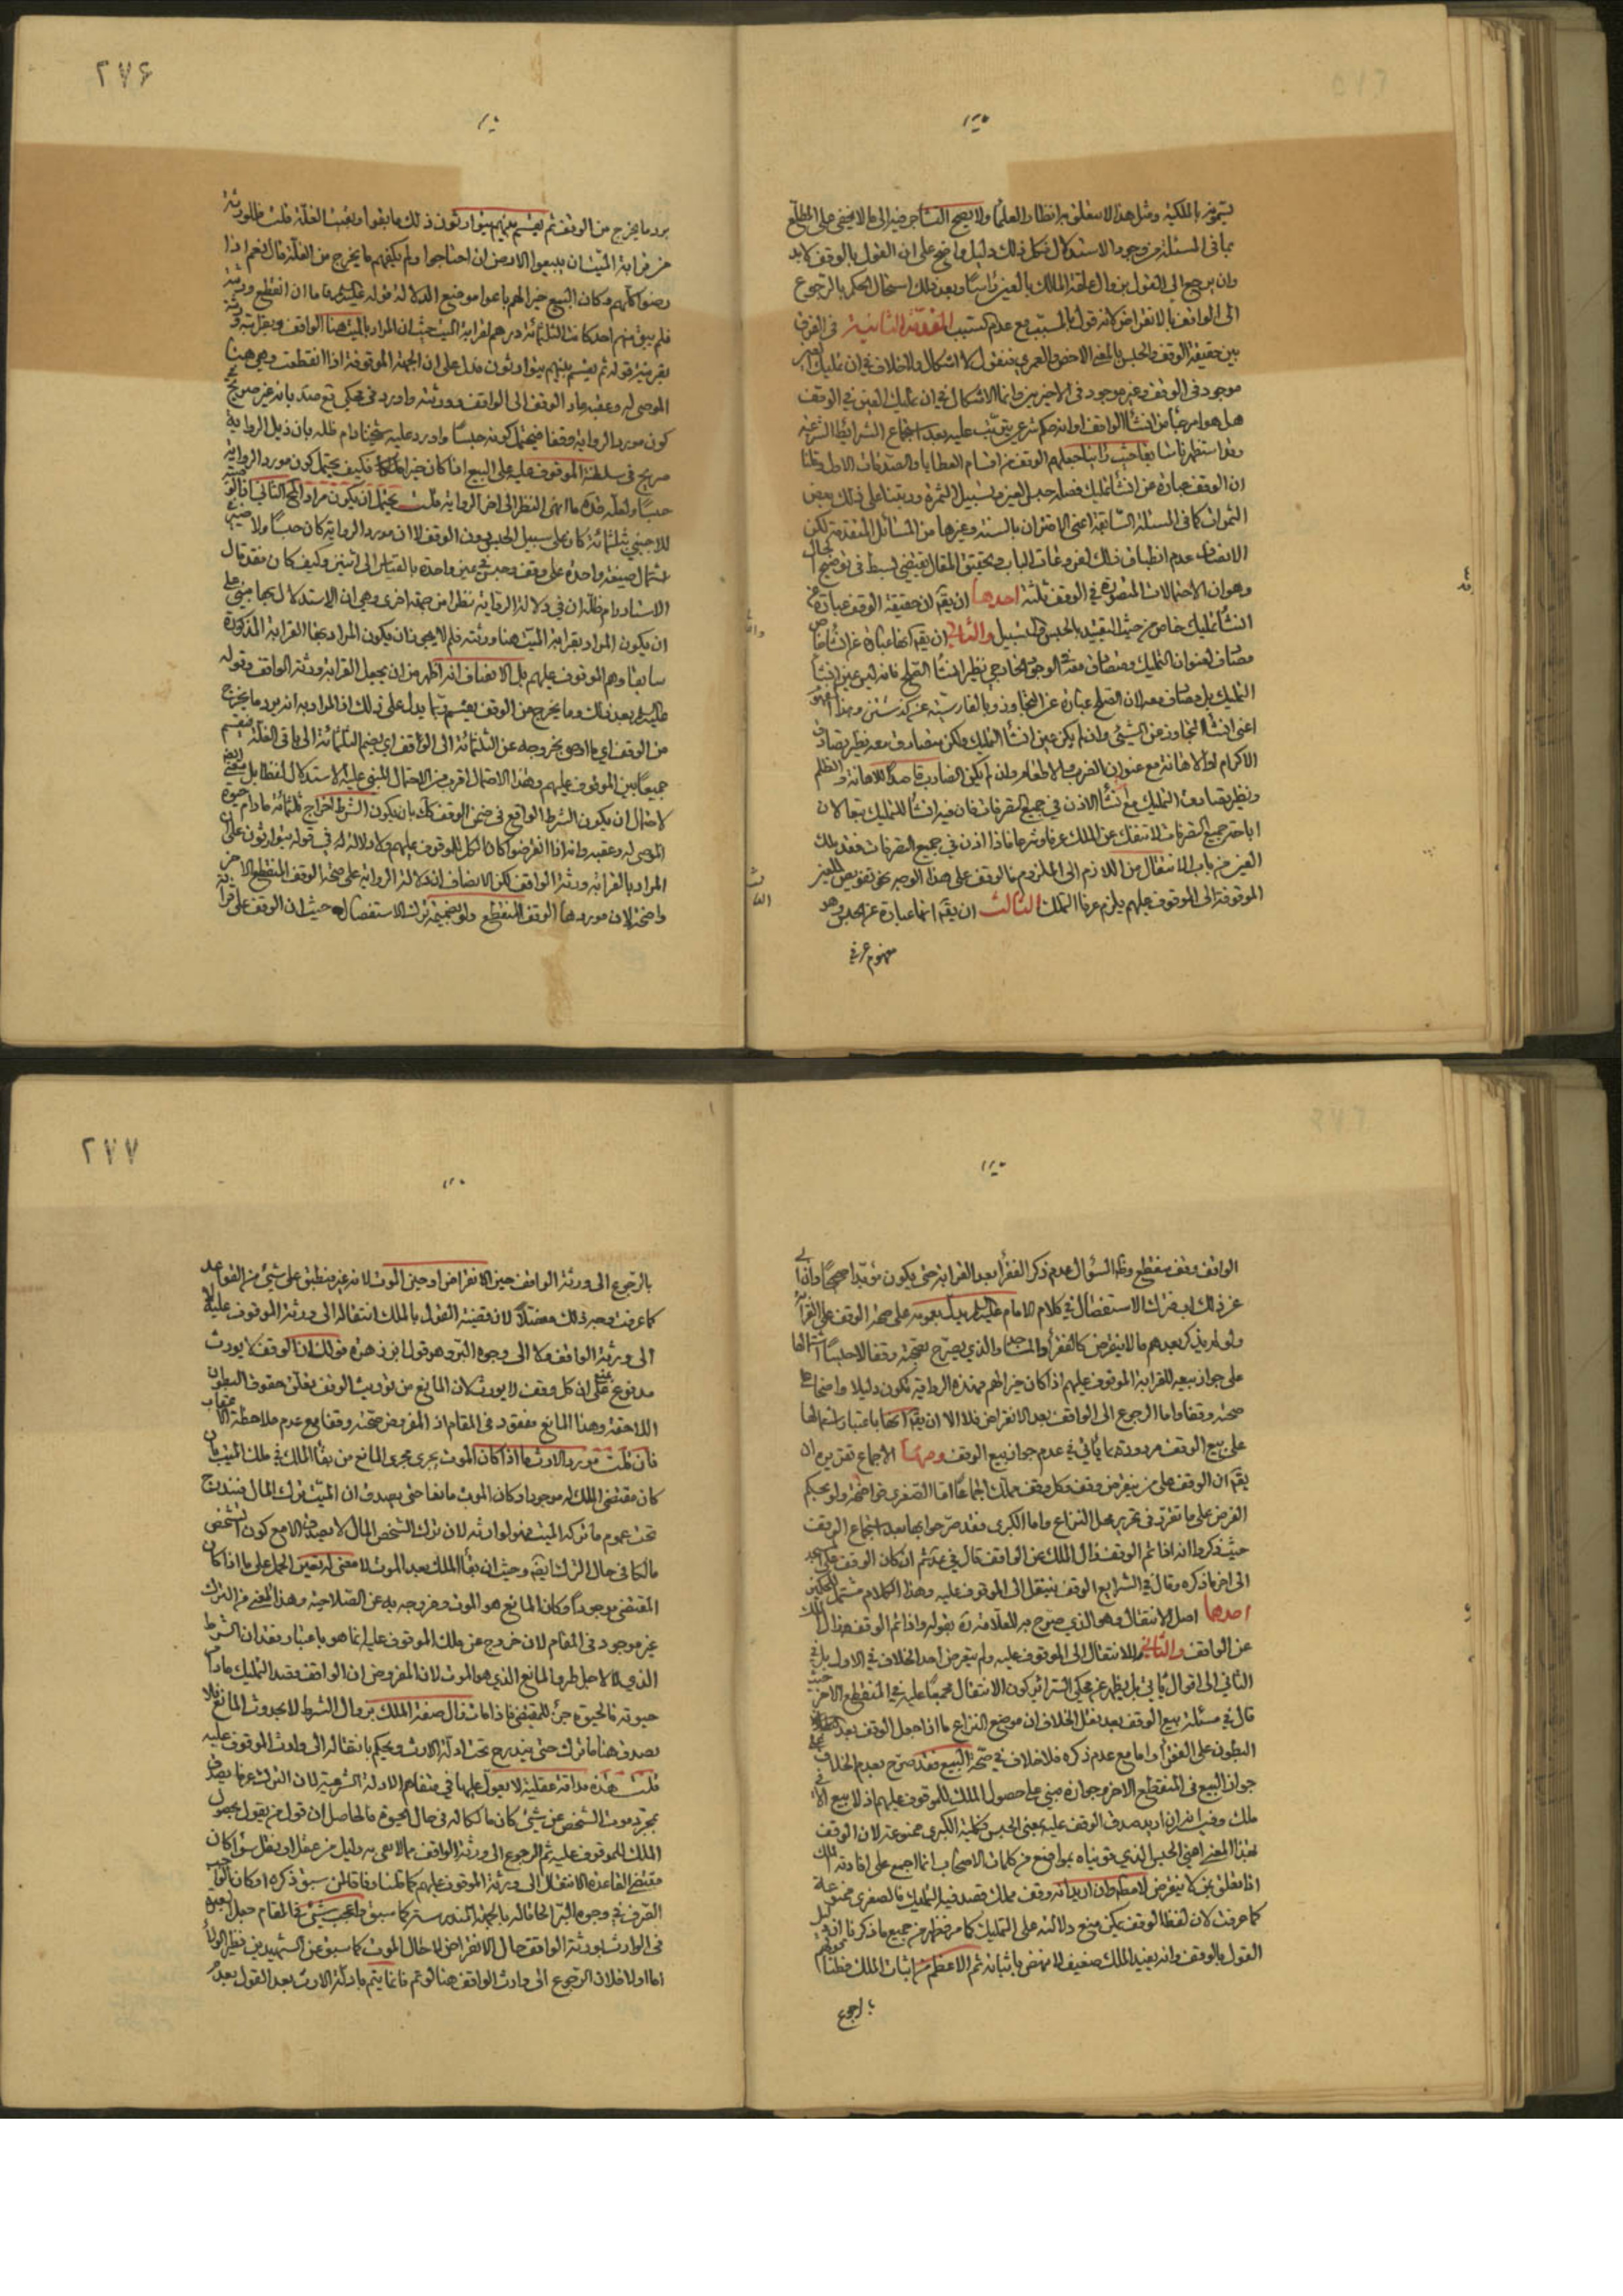 ٢٧۶
بتميّز بالملكية ومثل هذا لا يتعلق به انظار العلماء ولا يصح التشاجر فيه الى ما لا يخفى على المطلع
بما فى المسئلة من وجوه الاستدلال فكل ذلك دليل واضح على ان القول بالوقف لا بد
وان يرجع الى القول بزوال علقة المالك بالعين راسًا وبعد ذلك استحال الحكم بالرجوع
الى الواقف بالانقراض لانه قول بالمسبب مع عدم السبب المقدمة الثانية فى الفرق
بين حقيقة الوقف والحبس بالمعنى الاخص والعمرى فنقول لا اشكال ولا خلاف فى ان تمليك العين
موجود فى الوقف وغير موجود فى الاخيرين وانما الاشكال فى ان تمليك العين فى الوقف
هل هو امر جاء من انشاء الواقف او انه حكم شرعى يترتب عليه بعد اجتماع الشرايط الشرعية
وقد استظهرنا سابقا حيث راينا جعلهم الوقف من اقسام العطايا والصدقات الاول وقلنا
ان الوقف عبارة عن انشاء تمليك فصله حبس العين وتسبيل الثمرة ورتبنا على ذلك بعض
الثمرات كما فى المسئلة السابقة اعنى الاقتران بالسنة وغيرها من المسائل المتقدمة لكن
الانصاف عدم انطباق ذلك لفروعات الباب وتحقيق المقال يقتضى بسط فى توضيح الحال
وهو ان الاحتمالات المتصورة فى الوقف ثلثة احدها ان يقم ان حقيقة الوقف عبارة عن
انشاء تمليك خاص من حيث التقييد بالحبس والتسبيل والثانى ان يقم انها عبارة عن انشاء خاص
مصادق لعنوان التمليك ومتصادق معه فى الوجود الخارجى نظير انشاء الصلح فانه ليس عين انشاء
التمليك بل مصادق معه لان الصلح عبارة عن التجاوز وبالفارسية عن كذشتن وهذا المفهوم
اعنى انشاء التجاوز عن الشىء وان لم يكن عين انشاء التمليك ولكن متصادق معه نظير تصادق
الاكرام او الاهانة مع عنوان الضرب والاطعام وان لم يكن الضارب قاصدًا للاهانة والظلم
ونظير تصادق التمليك مع انشاء الاذن فى جميع التصرفات فان فيه انشاء للتمليك تبعا لان
اباحة جميع التصرفات لا تنفك عن الملك عرفا وشرعا فاذا اذن فى جميع التصرفات فقد ملك
العين من باب الانتقال من اللازم الى الملزوم فالوقف على هذا الوجه نحو تفويض للعين
الموقوفة الى الموقوف عليهم يلزم عرفا التملك الثالث ان يقم انها عبارة عن الحبس وهو
مفهوم عرفى
يرد ما يخرج من الوقف ثم يقسم بينهم يتوارثون ذلك ما بقوا وبقيت الغلة قلت فللورثة
من قرابة الميت ان يبيعوا الارض ان احتاجوا ولم يكفهم ما يخرج من الغلة قال نعم اذا
رضوا كلهم وكان البيع خيرا لهم باعوا موضع الدلالة قوله عليه السلام فاما ان انقطع ورثته
فلم يبق منهم احد كانت الثلثمائة درهم لقرابة الميت حيث ان المراد بالميت هنا الواقف
بقرينة قوله ثم يقسم بينهم يتوارثون فدل على ان الجهة الموقوفة اذا انقطعت وهى هنا
الموصى له وعقبه عاد الوقف الى الواقف وورثته واورد فى محكى بانه غير صريح
كون مورد الرواية وقفا فيحتمل كونه حبسًا واورد عليه شيخنا دام ظله بان ذيل الرواية
صريح فى سلطنة الموقوف عليه على البيع اذا كان خيرا فكيف يحتمل كون مورد الرواية
حبسًا ولعله قده ما انهى النظر الى اخر الرواية قلت يحتمل ان يكون مراد المحقق الثانى
للاجنبى بثلثمائة كان على سبيل الحبس دون الوقف لا ان مورد الرواية كان حبسًا ولا ضير
اشتمال صيغة واحدة على وقف وحبس فى عين واحدة بالقياس الى اثنين وكيف كان فقد قال
الاستاد دام ظله ان فى دلالة الرواية نظرا من جهة اخرى وهى ان الاستدلال بها مبنى على
ان يكون المراد بقرابة الميت هنا ورثته فلم لا يجوز ان يكون المراد بها القرابة المذكورة
سابقا وهم الموقوف عليهم بل الانصاف انه اظهر من ان يجعل القرابة ورثة الواقف وقوله
عليه السلم بعد ذلك وما يخرج من الوقف يقسم ربما يدل على ذلك اذ المراد به انه يرد ما يخرج
من الوقف اى ما اوصى بخروجه عن الثلثمائة الى الواقف اى يضم الثلثمائة الى باقى الغلة فيقسم
جميعًا بين الموقوف عليهم وهذا الاحتمال اقرب من الاحتمال المبنى عليه الاستدلال لفظا بل معنى
لاحتمال ان يكون الشرط الواقع فى ضمن الوقف كك بان يكون الشرط اخراج ثلثمائة ما دام حيوة
الموصى له وعقبه وانه اذا انقرضوا كان الكل للموقوف عليهم ولا دلالة له فى قوله يتوارثون على ان
المراد بالقرابة ورثة الواقف لكن الانصاف ان دلالة الرواية على صحة الوقف المنقطع الاخر
واضحة لان موردها الوقف المنقطع ولو بضميمة ترك الاستفصال حيث ان الوقف على قرابة
٢٧٧
الواقف وقف منقطع وظ السؤال عدم ذكر الفقراء بعد القرابة حتى يكون مؤبدا صحيحًا
عن ذلك فترك الاستفصال فى كلام الامام عليه السلم يدل بعمومه على صحة الوقف على القرابة
ولو لم يذكر بعدهم ما لا ينقرض كالفقراء والمساجد والذى يصرح بصحته وقفا لا حبسًا اشتمالها
على جواز بيعه للقرابة الموقوف عليهم اذا كان خيرا لهم فهذه الرواية تكون دليلا واضحا على
صحته وقفا واما الرجوع الى الواقف بعد الانقراض فلا الا ان يقم انها باعتبار اشتمالها
على بيع الوقف مردودة بما يأتى فى عدم جواز بيع الوقف ومنها الاجماع تقريره ان
يقم ان الوقف على من ينقرض وقف وكل وقف مملك اجماعًا اما الصغرى فواضحة ولو بحكم
الفرض على ما تقرر فى تحرير محل النزاع واما الكبرى فقد صرحوا بها بعد اجتماع الوقف
حيث ذكروا انه اذا تم الوقف زال الملك عن الواقف قال فى عد ثم ان كان الوقف على مسجد
الى اخر ما ذكره وقال فى الشرايع الوقف ينتقل الى الموقوف عليه وهذا الكلام مشتمل لحكمين
احدها اصل الانتقال وهو الذى صرح به العلامة ره بقوله واذا تم الوقف زال الملك
عن الواقف والثانى الانتقال الى الموقوف عليه ولم يتعرض احد الخلاف فى الاول بل فى
الثانى الى اقوال يأتى بل يظهر عن محكى السرائر كون الانتقال مجمعًا عليه فى المنقطع الاخر حيث
قال فى مسئلة بيع الوقف بعد نقل الخلاف ان موضع النزاع ما اذا جعل الوقف بعد انقراض
البطون على الفقراء واما مع عدم ذكره فلا خلاف فى صحة البيع فقد صرح بعدم الخلاف فى
جواز البيع فى المنقطع الاخر وجوازه مبنى على حصول الملك للموقوف عليهم اذ لا بيع الا فى
ملك وفيه انه ان اريد صدق الوقف عليه بمعنى الحبس فكلية الكبرى ممنوعة لان الوقف
بهذا المعنى اعنى الحبس الذى قويناه بمواضع من كلمات الاصحاب انما اجمع على افادته الملك
اذا تعلق بمن لا ينقرض لا مطلقا وان اريد انه وقف مملك قصد فيه التمليك فالصغرى ممنوعة
كما عرفت لان لفظ الوقف يمكن منع دلالته على التمليك كما مر فظهر من جميع ما ذكرنا ان دليل
القول بالوقف وانه يفيد الملك ضعيف لا ينهض باثباته ثم الاعظم من اثبات الملك حكمهم
بالرجوع
بالرجوع الى ورثة الواقف حين الانقراض او حين الموت لانه غير منطبق على شىء من القواعد
كما عرفت وجه ذلك مفصلًا لان قضية القول بالملك انتقاله الى ورثة الموقوف عليه لا
الى ورثة الواقف ولا الى وجوه البر وهو قول ابن زهرة قولك ان الوقف لا يورث
مدفوع بمنع ان كل وقف لا يورث لان المانع من توريث الوقف تعلق حقوق البطون
اللاحقة وهذا المانع مفقود فى المقام اذ المفروض صحته وقفا مع عدم ملاحظة الاعقاب
فان قلت مورد الارث ما اذا كان الموت يجرى مجرى المانع من بقاء الملك فى ملك الميت بان
كان مقتضى الملك له موجودا وكان الموت مانعا حتى يصدق ان الميت ترك المال فيندرج
تحت عموم ما تركه الميت فهو لوارثه لان ترك الشخص المال لا يصدق الا مع كون الشخص
مالكا فى حال الترك ايضا وحيث ان بقاء الملك بعد الموت لا معنى له تعين الحمل على ما اذا كان
المقتضى موجودًا وكان المانع هو الموت وخروجه به عن الصلاحية وهذا المعنى من الترك
غير موجود فى المقام لان خروج عن ملك الموقوف عليه انما هو باعتبار فقدان الشرط
الذى لا لاجل طرو المانع الذى هو الموت لان المفروض ان الواقف قصد التمليك مادام
حيوته فالحيوة جزء للمقتضى فاذا مات زال صفة الملك بزوال الشرط لا بحدوث المانع فلا
يصدق هنا ما ترك حتى يندرج تحت ادلة الارث ويحكم بانتقاله الى وارث الموقوف عليه
قلت هذه مداقة عقلية لا يعول عليها فى متفاهم الادلة الشرعية لان الترك عرفا يصدق
بمجرد موت الشخص عن شىء كان مالكا له فى حال الحيوة فالحاصل ان قول من يقول بحصول
الملك للموقوف عليه ثم الرجوع الى ورثة الواقف مما لا يفى به دليل من عقل او نقل سواء كان
مقتضى القاعدة الانتقال الى ورثة الموقوف عليهم كما قلنا وفاقا لمن سبق ذكره او كان الواجب
الصرف فى وجوه البر الحاقا له بالجهة المندرسة كما سبق واعجب شىء فى المقام جعل بعضهم
فى الوارث بورثة الواقف حال الانقراض لا حال الموت كما سبق عن الشهيدين فنظير الاول
اما اولا فلان الرجوع الى وارث الواقف هنا لو تم فانما يتم بادلة الارث بعد القول بعدم